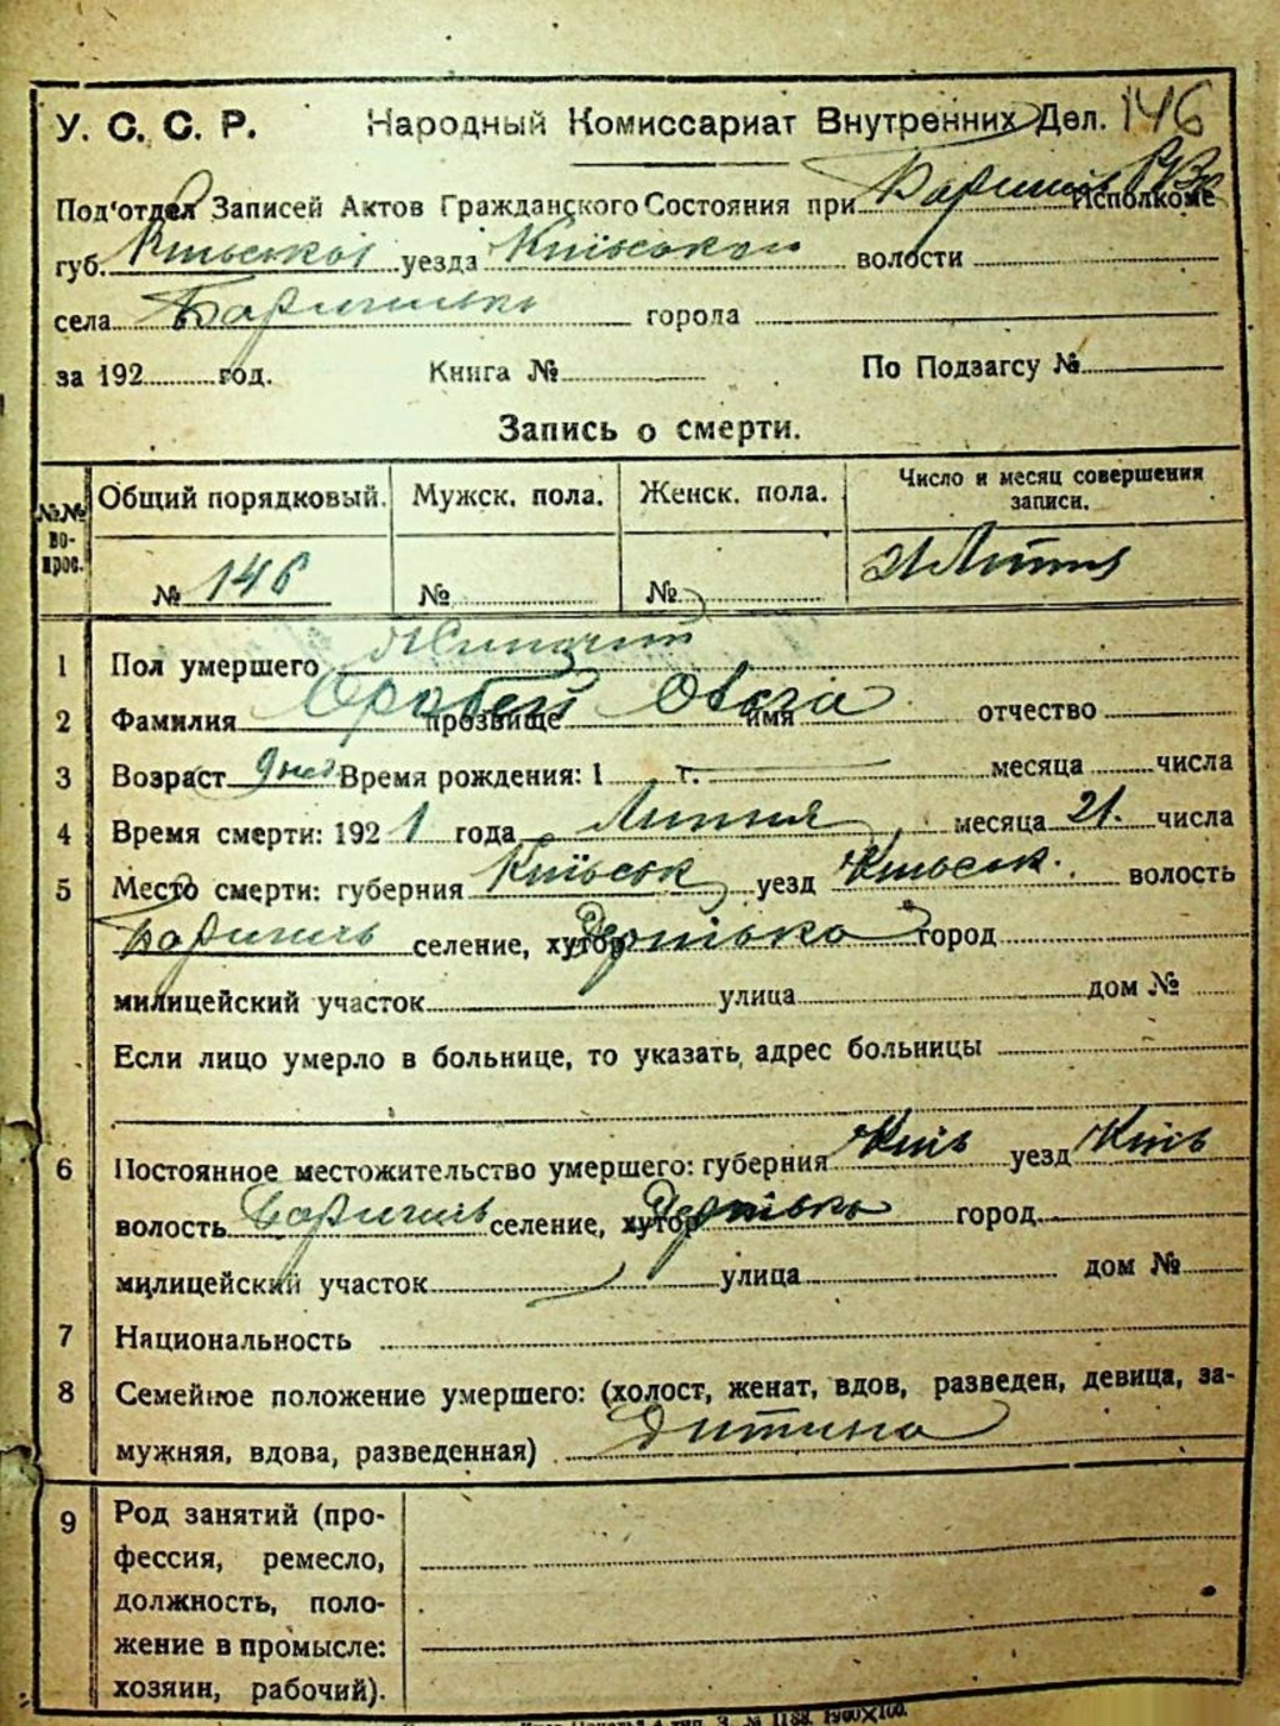 У. С. С. Р. Народный Комиссариат Внутренних Дел. 146
Под'отдел Записей Актов Гражданского Состояния при Исполкоме
губ. Київської уезда Київского волости
села города
за 192 год. Книга № По Подзагсу №
Запись о смерти.
№№ во-прос. Общий порядковый. Мужск. пола. Женск. пола. Число и месяц совершения записи.
№ 146 № № 21 Липня
1 Пол умершего
2 Фамилия прозвище имя отчество
3 Возраст 9 дней Время рождения: 1 г. месяца числа
4 Время смерти: 192 1 года Липня месяца 21. числа
5 Место смерти: губерния Київськ уезд Київськ. волость
селение, хутор город
милицейский участок улица дом №
Если лицо умерло в больнице, то указать адрес больницы
6 Постоянное местожительство умершего: губерния Київ уезд Київ
волость селение, хутор город
милицейский участок улица дом №
7 Национальность
8 Семейное положение умершего: (холост, женат, вдов, разведен, девица, за-
мужняя, вдова, разведенная) дитина
9 Род занятий (про-
фессия, ремесло,
должность, поло-
жение в промысле:
хозяин, рабочий).